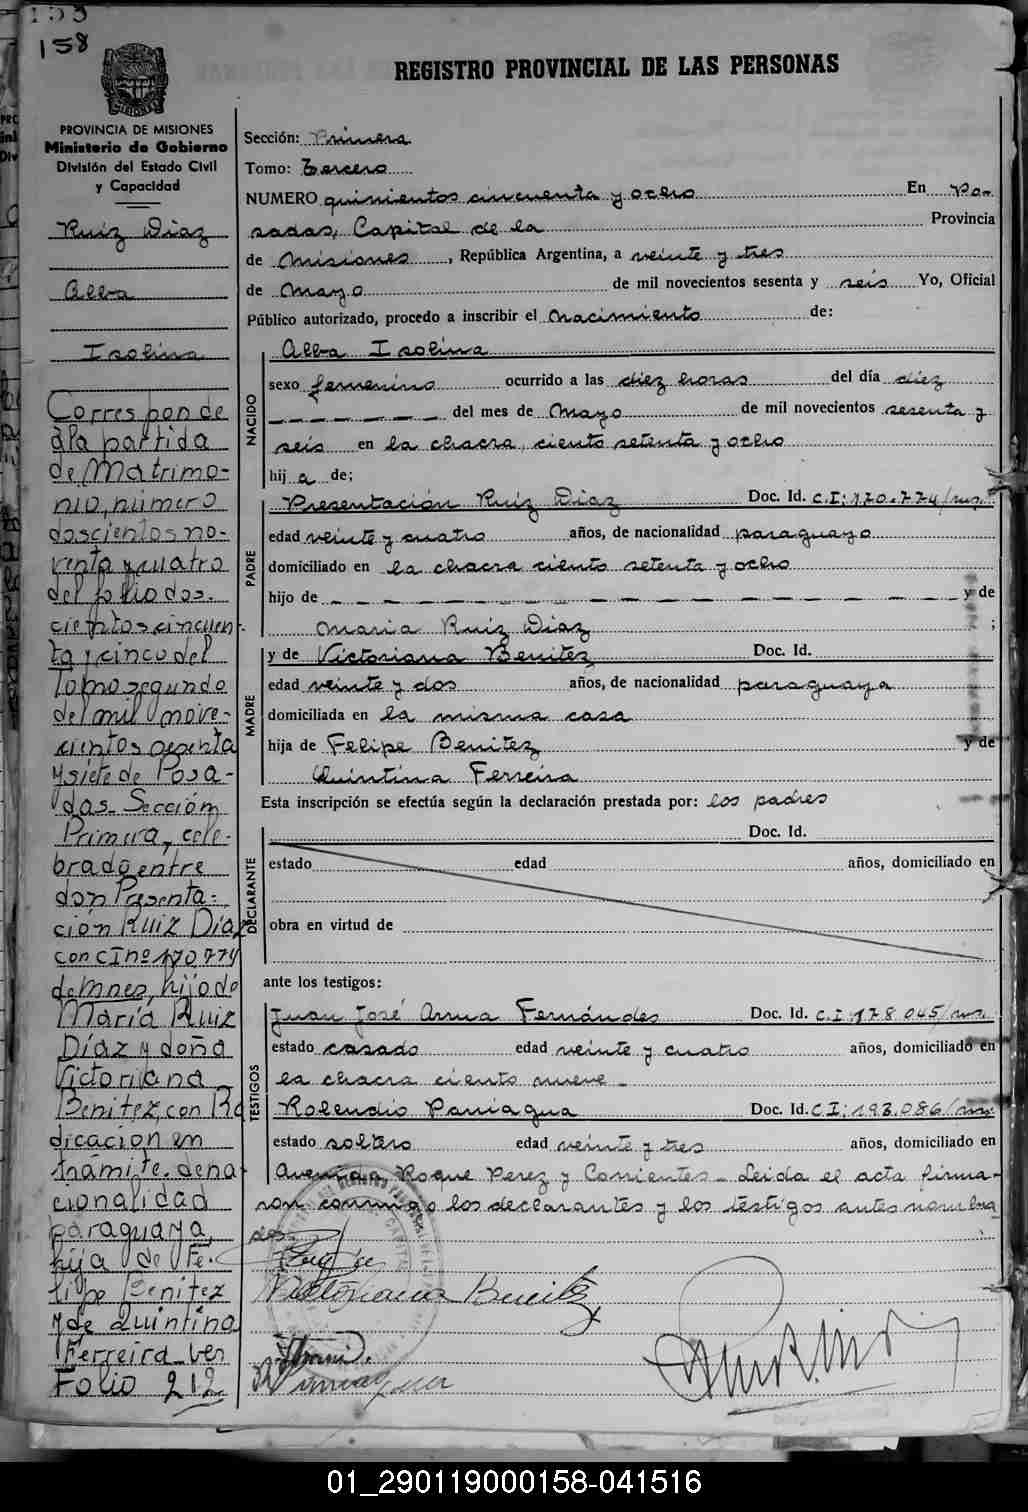 153
158
REGISTRO PROVINCIAL DE LAS PERSONAS
PROVINCIA DE MISIONES
Ministerio de Gobierno
División del Estado Civil
y Capacidad
Ruiz Diaz
Alba
Isolina
Corresponde
a la partida
de Matrimo-
nio, número
doscientos no-
venta y cuatro
del folio dos.
cientos cincuen-
ta y cinco del
Tomo segundo
del mil nove-
cientos sesenta
y siete de Posa-
das. Sección
Primera, cele-
brado entre
don Presenta-
ción Ruiz Díaz
con CI nº 170.774
de Mnes, hijo de
María Ruiz
Díaz y doña
Victoriana
Benitez, con Ra
dicación en
trámite. de na-
cionalidad
paraguaya,
hija de Fe.
lipe Benitez
y de Quintina
Ferreira_ver
Folio 212
Sección: Primera
Tomo: Tercero
NUMERO quinientos cincuenta y ocho En Po-
sadas, Capital de la Provincia
de Misiones, República Argentina, a veinte y tres
de Mayo de mil novecientos sesenta y seis Yo, Oficial
Público autorizado, procedo a inscribir el Nacimiento de:
NACIDO
Alba Isolina
sexo femenino ocurrido a las diez horas del día diez
_ _ _ _ _ _ del mes de Mayo de mil novecientos sesenta y
seis en la chacra, ciento setenta y ocho
hij a de;
PADRE
Presentación Ruiz Diaz Doc. Id. C.I: 170.774/ms.
edad veinte y cuatro años, de nacionalidad paraguayo
domiciliado en la chacra ciento setenta y ocho
hijo de _ _ _ _ _ _ _ _ _ _ y de
Maria Ruiz Diaz ;
MADRE
y de Victoriana Benitez Doc. Id.
edad veinte y dos años, de nacionalidad paraguaya
domiciliada en la misma casa
hija de Felipe Benitez y de
Quintina Ferreira
Esta inscripción se efectúa según la declaración prestada por: los padres
DECLARANTE
Doc. Id.
estado edad años, domiciliado en
obra en virtud de
ante los testigos:
TESTIGOS
Juan José Arrua Fernándes Doc. Id. C.I: 178.045/ms.
estado casado edad veinte y cuatro años, domiciliado en
la chacra ciento nueve_
Rosendio Paniagua Doc. Id. C.I: 193.086/ms.
estado soltero edad veinte y tres años, domiciliado en
Avenida Roque Perez y Corrientes_ Leida el acta firma-
ron conmigo los declarantes y los testigos antes nombra
dos.
Victoriana Benitez
01_290119000158-041516